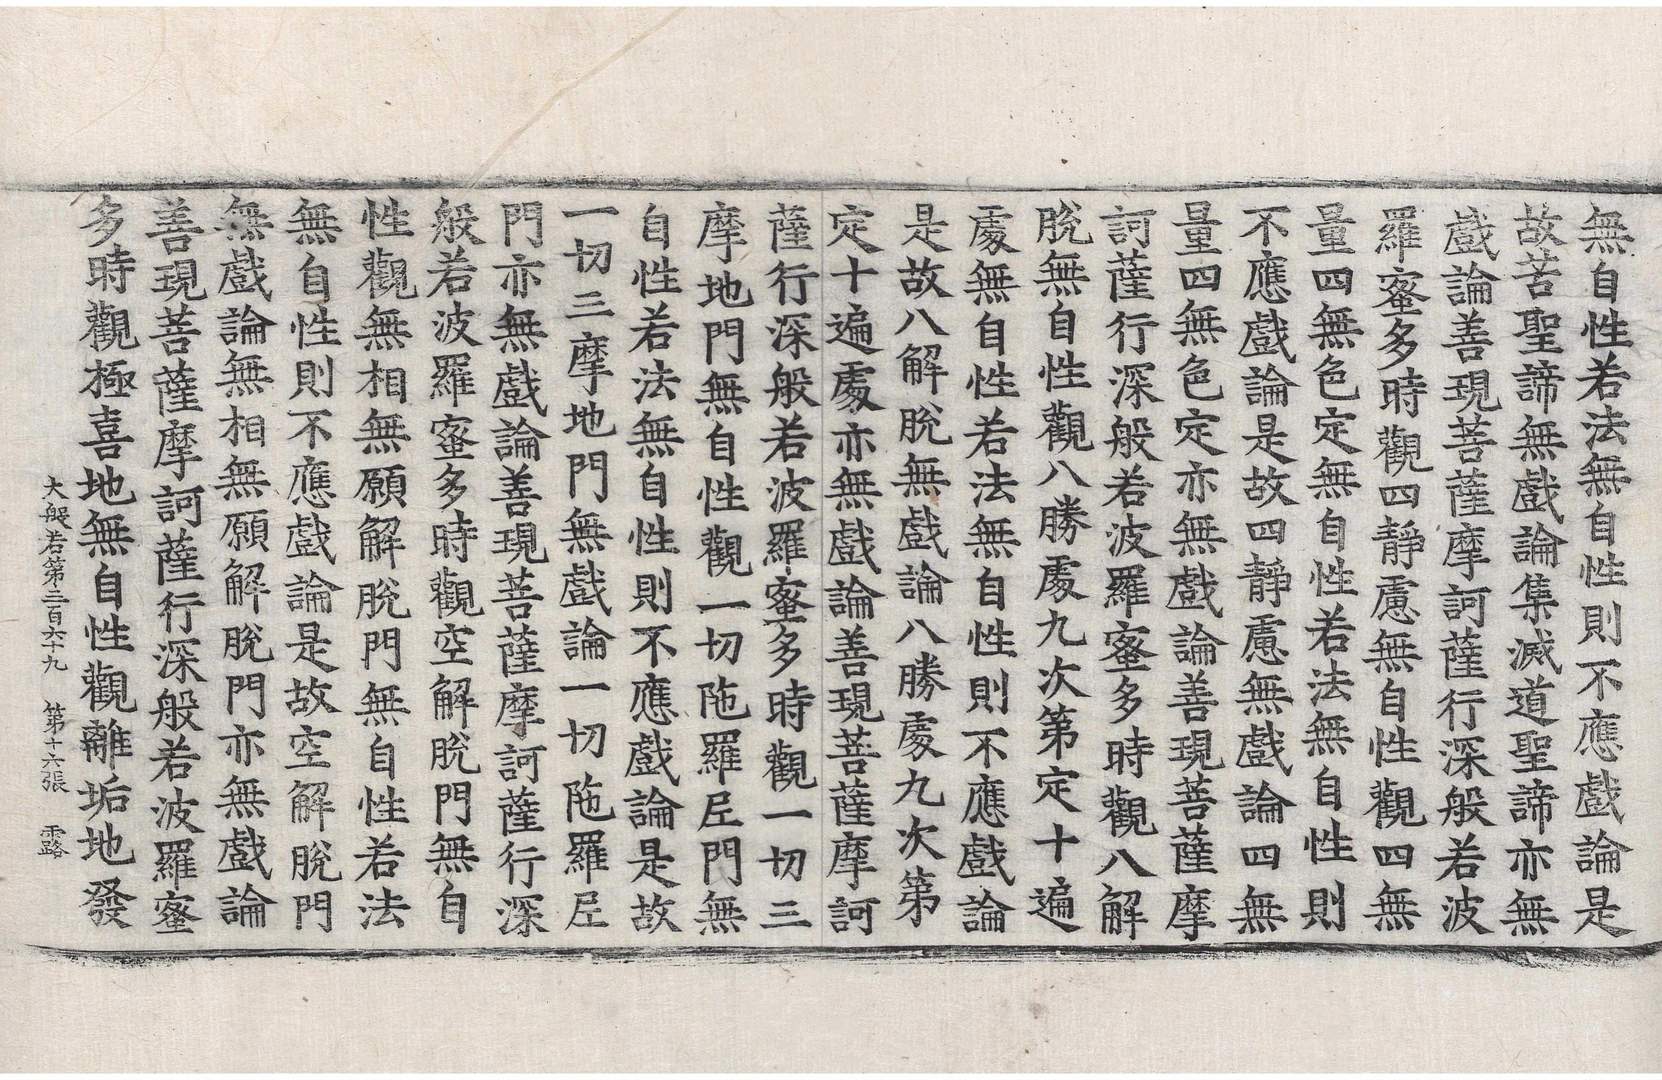 無自性若法無自性則不應戲論是
故苦聖諦無戲論集滅道聖諦亦無
戲論善現菩薩摩訶薩行深般若波
羅蜜多時觀四靜慮無自性觀四無
量四無色定無自性若法無自性則
不應戲論是故四靜慮無戲論四無
量四無色定亦無戲論善現菩薩摩
訶薩行深般若波羅蜜多時觀八解
脫無自性觀八勝處九次第定十遍
處無自性若法無自性則不應戲論
是故八解脫無戲論八勝處九次第
定十遍處亦無戲論善現菩薩摩訶
薩行深般若波羅蜜多時觀一切三
摩地門無自性觀一切陁羅尼門無
自性若法無自性則不應戲論是故
一切三摩地門無戲論一切陁羅尼
門亦無戲論善現菩薩摩訶薩行深
般若波羅蜜多時觀空解脫門無自
性觀無相無願解脫門無自性若法
無自性則不應戲論是故空解脫門
無戲論無相無願解脫門亦無戲論
善現菩薩摩訶薩行深般若波羅蜜
多時觀極喜地無自性觀離垢地發
大般若第三百六十九 第十六張 露